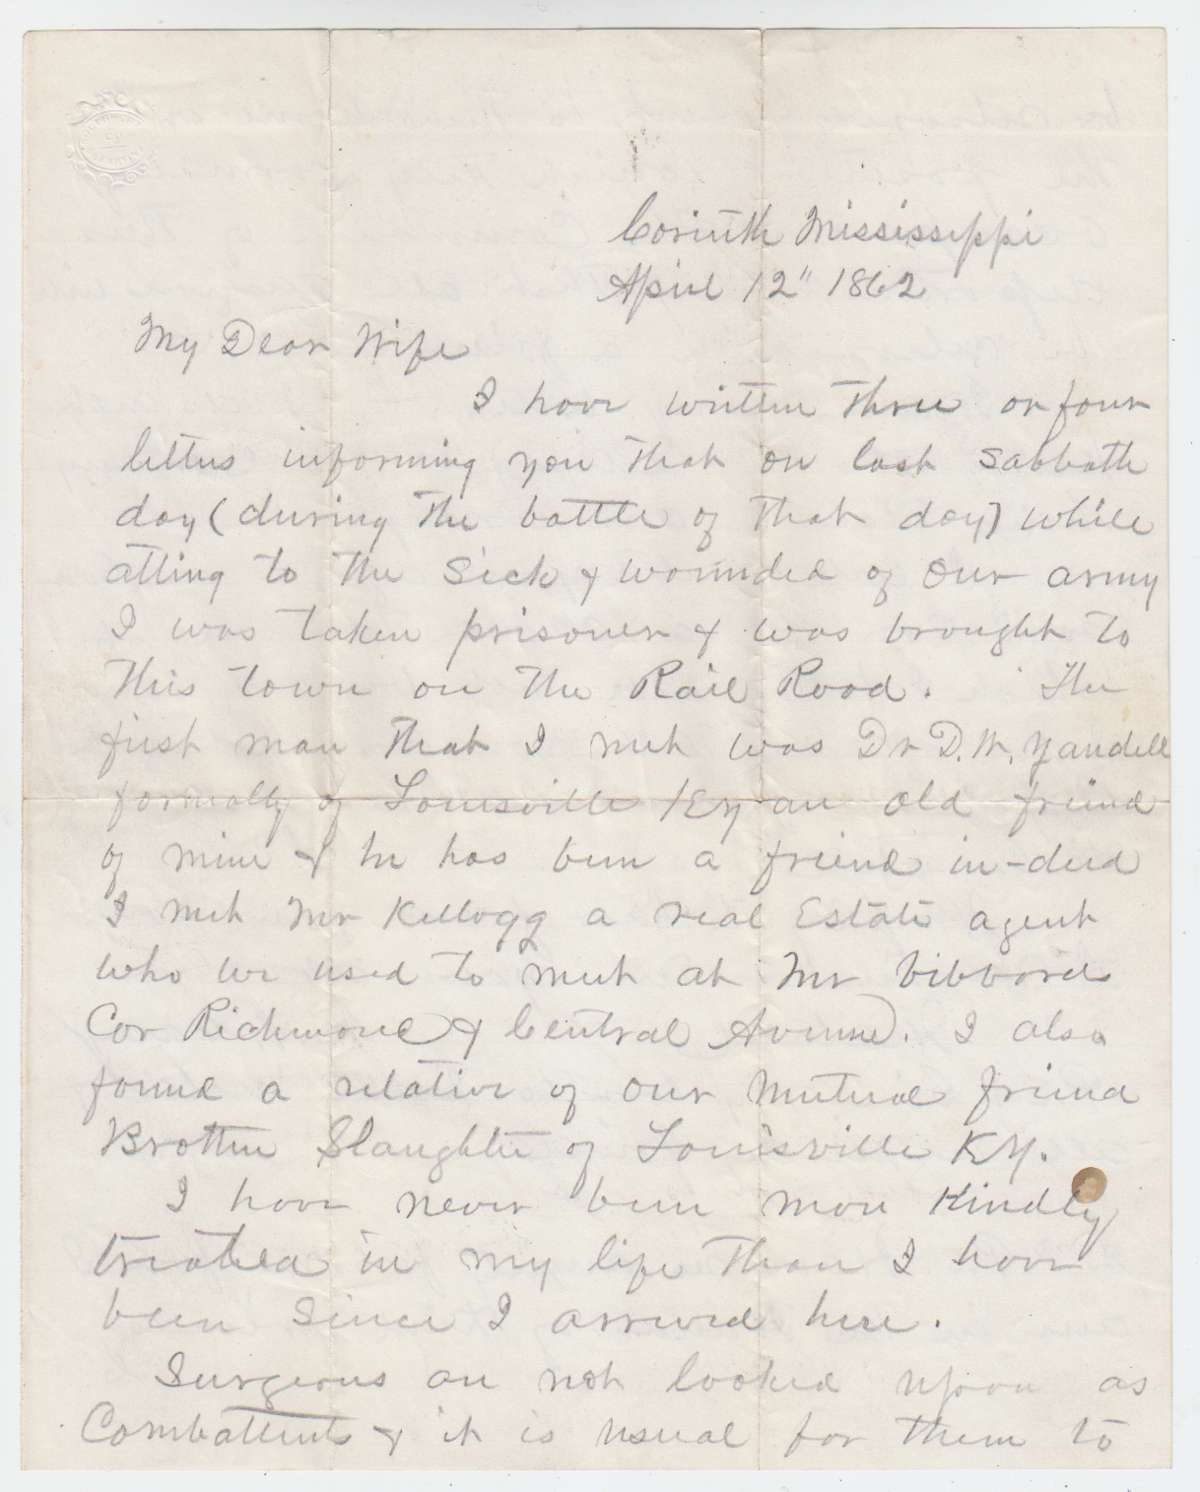 Corinth Mississippi
April 12" 1862
My Dear Wife
I have written three or four
letters informing you that on last Sabbath
day (during the battle of that day) while
atting to the Sick & wounded of our army
I was taken prisoner & was brought to
this town on the Rail Road. The
first man that I met was Dr D. W. Yandell
formally of Louisville Ky an old friend
of mine & he has been a friend in-deed
I met Mr Kellogg a real Estate agent
who we used to meet at Mr
Cor Richmond & Central Avenue. I also
found a relative of our mutual friend
Brother Slaughter of Louisville KY.
I have never been more Kindly
treated in my life than I have
been since I arrived here.
Surgeons are not looked upon as
Combattents & it is usual for them to